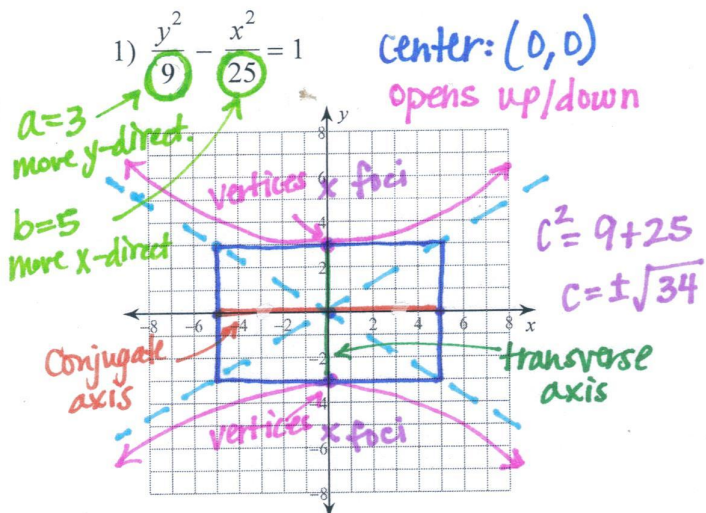 1) y²/9 − x²/25 = 1
center: (0,0)
opens up/down
a=3
move y-direct.
b=5
move x-direct
vertices x foci
c² = 9+25
c = ±√34
Conjugate
axis
transverse
axis
vertices x foci
y
x
8
6
4
2
-2
-4
-6
-8
-8 -6 -4 -2 2 4 6 8